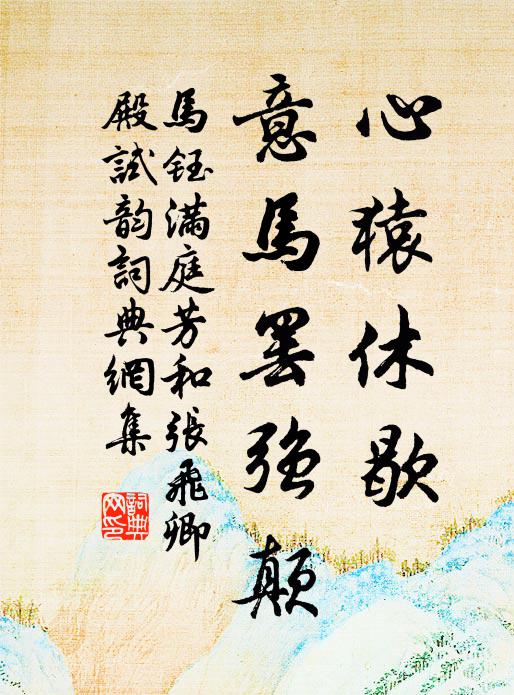 心猿休歇
意馬罢強顛
馬鈺满庭芳和張飛卿
殿試韵詞典網集
詞典
网印